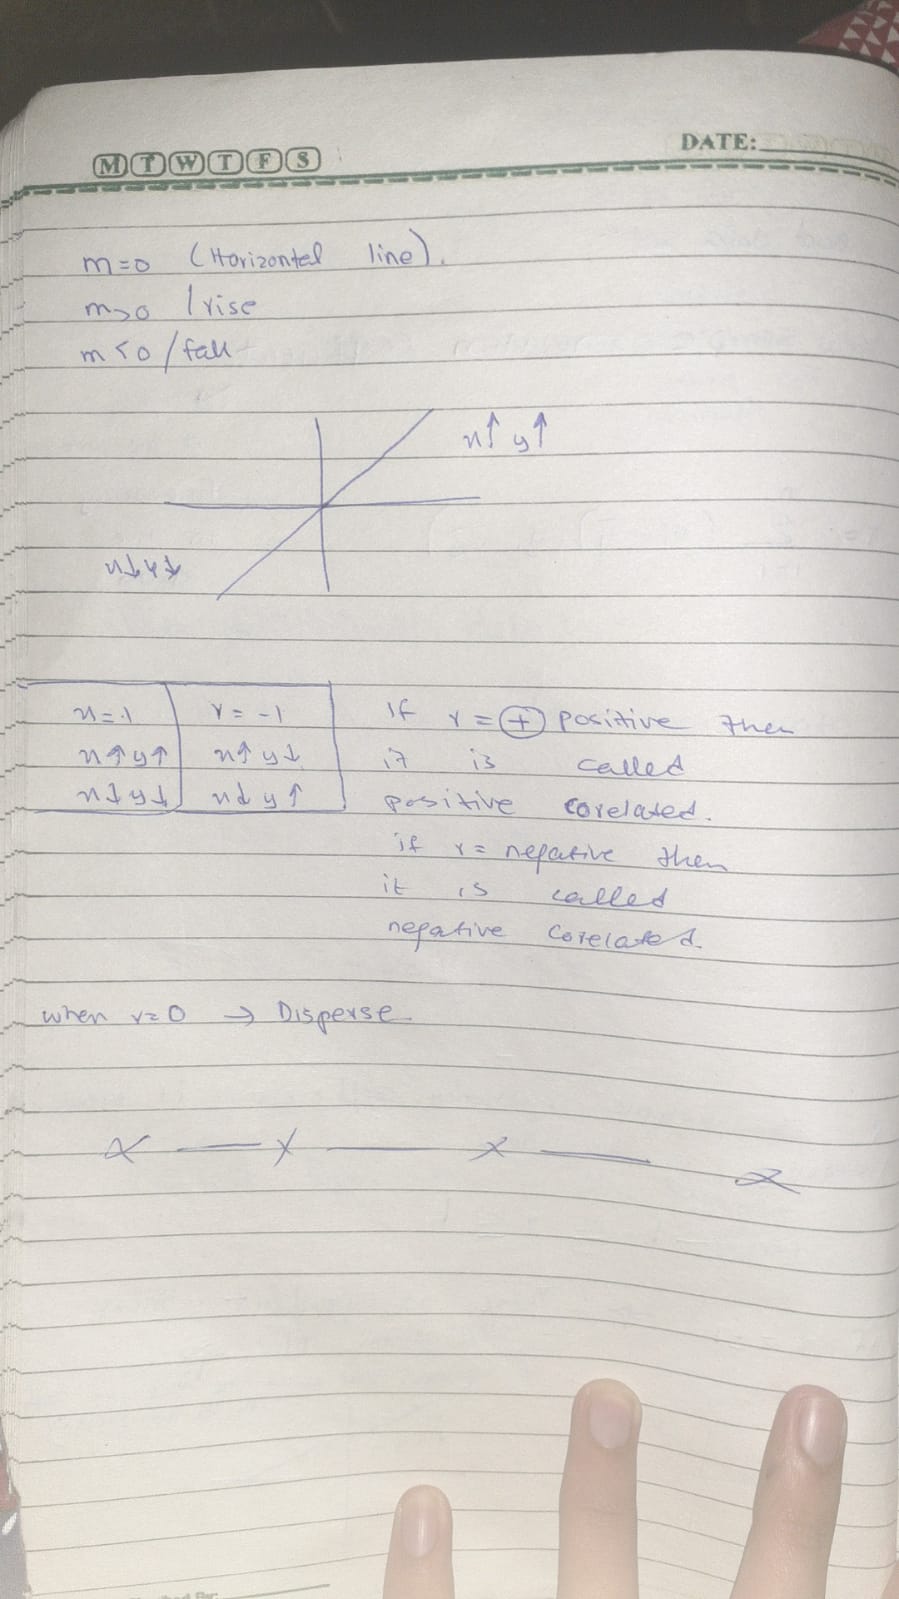 M T W T F S
DATE:
m=0 (Horizontal line).
m>0 / rise
m<0 / fall
x↑ y↑
x↓ y↓
x=1 r = -1
x↑y↑ x↑ y↓
x↓y↓ x↓ y↑
If r = + positive then
it is called
positive corelated.
if r = negative then
it is called
negative corelated.
when r=0 → Disperse